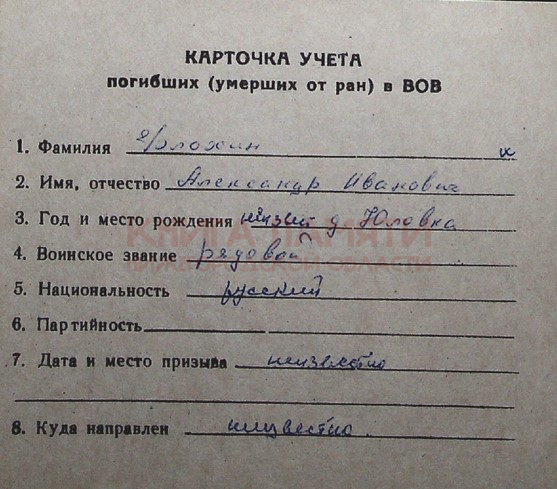 КАРТОЧКА УЧЕТА
погибших (умерших от ран) в ВОВ
1. Фамилия
2. Имя, отчество Александр Иванович
3. Год и место рождения д. Юловка
КНИГА ПАМЯТИ
4. Воинское звание рядовой
НИЖЕГОРОДСКОЙ ОБЛАСТИ
5. Национальность русский
6. Партийность
7. Дата и место призыва неизвестно
8. Куда направлен неизвестно